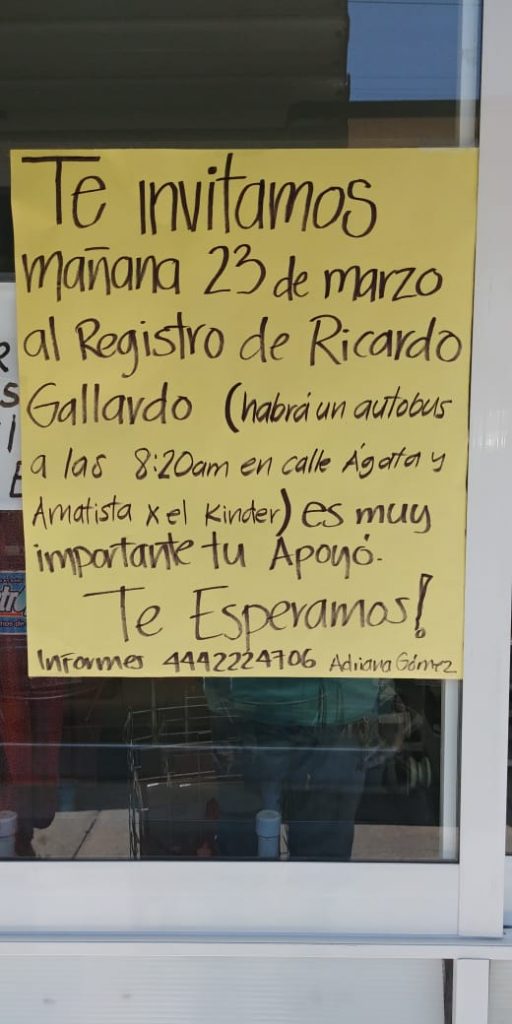 Te invitamos
mañana 23 de marzo
al Registro de Ricardo
Gallardo (habrá un autobus
a las 8:20am en calle Ágata y
Amatista x el Kinder) es muy
importante tu Apoyó.
Te Esperamos!
Informes 4442224706 Adriana Gómez